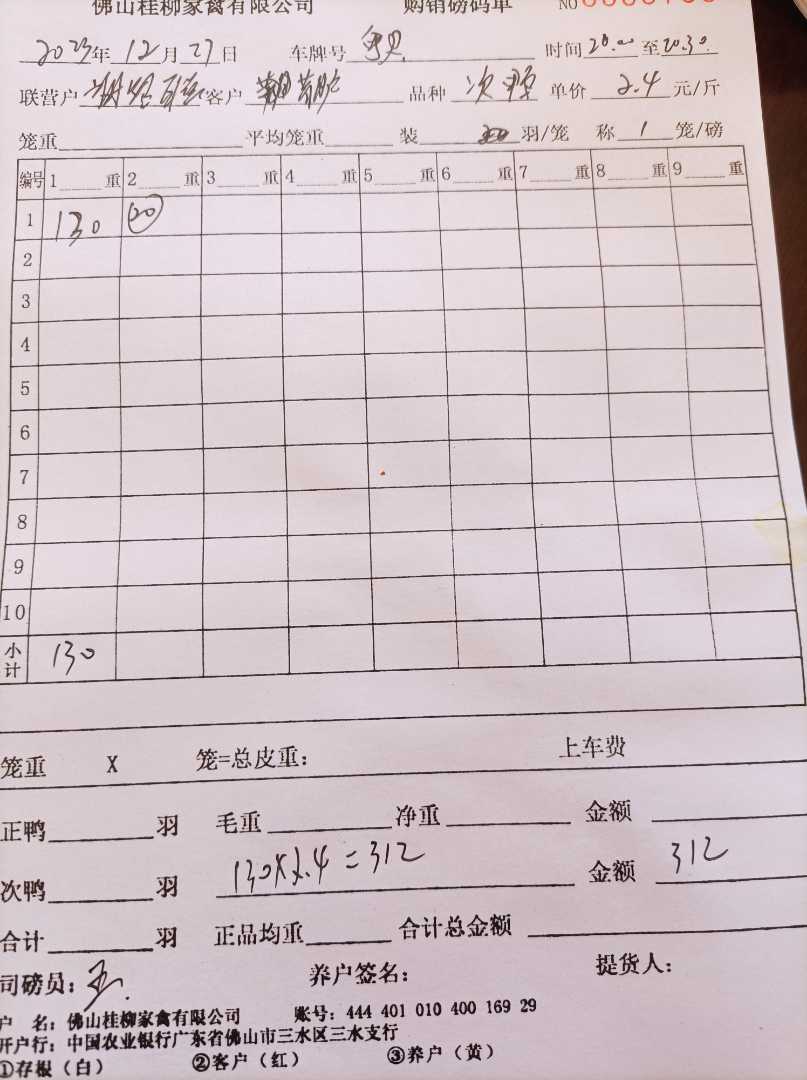 佛山桂柳家禽有限公司 购销磅码单 NO
2023年 12月 27日 车牌号 时间 20:00 至 20:30
联营户 客户 品种 次鸭 单价 2.4 元/斤
笼重 平均笼重 装 羽/笼 称 1 笼/磅
编号 1 重 2 重 3 重 4 重 5 重 6 重 7 重 8 重 9 重
1 130 20
2
3
4
5
6
7
8
9
10
小计 130
笼重 X 笼=总皮重： 上车费
正鸭 羽 毛重 净重 金额
次鸭 羽 130×2.4=312 金额 312
合计 羽 正品均重 合计总金额
司磅员： 养户签名： 提货人：
户 名：佛山桂柳家禽有限公司 账号：444 401 010 400 169 29
开户行：中国农业银行广东省佛山市三水区三水支行
①存根（白） ②客户（红） ③养户（黄）